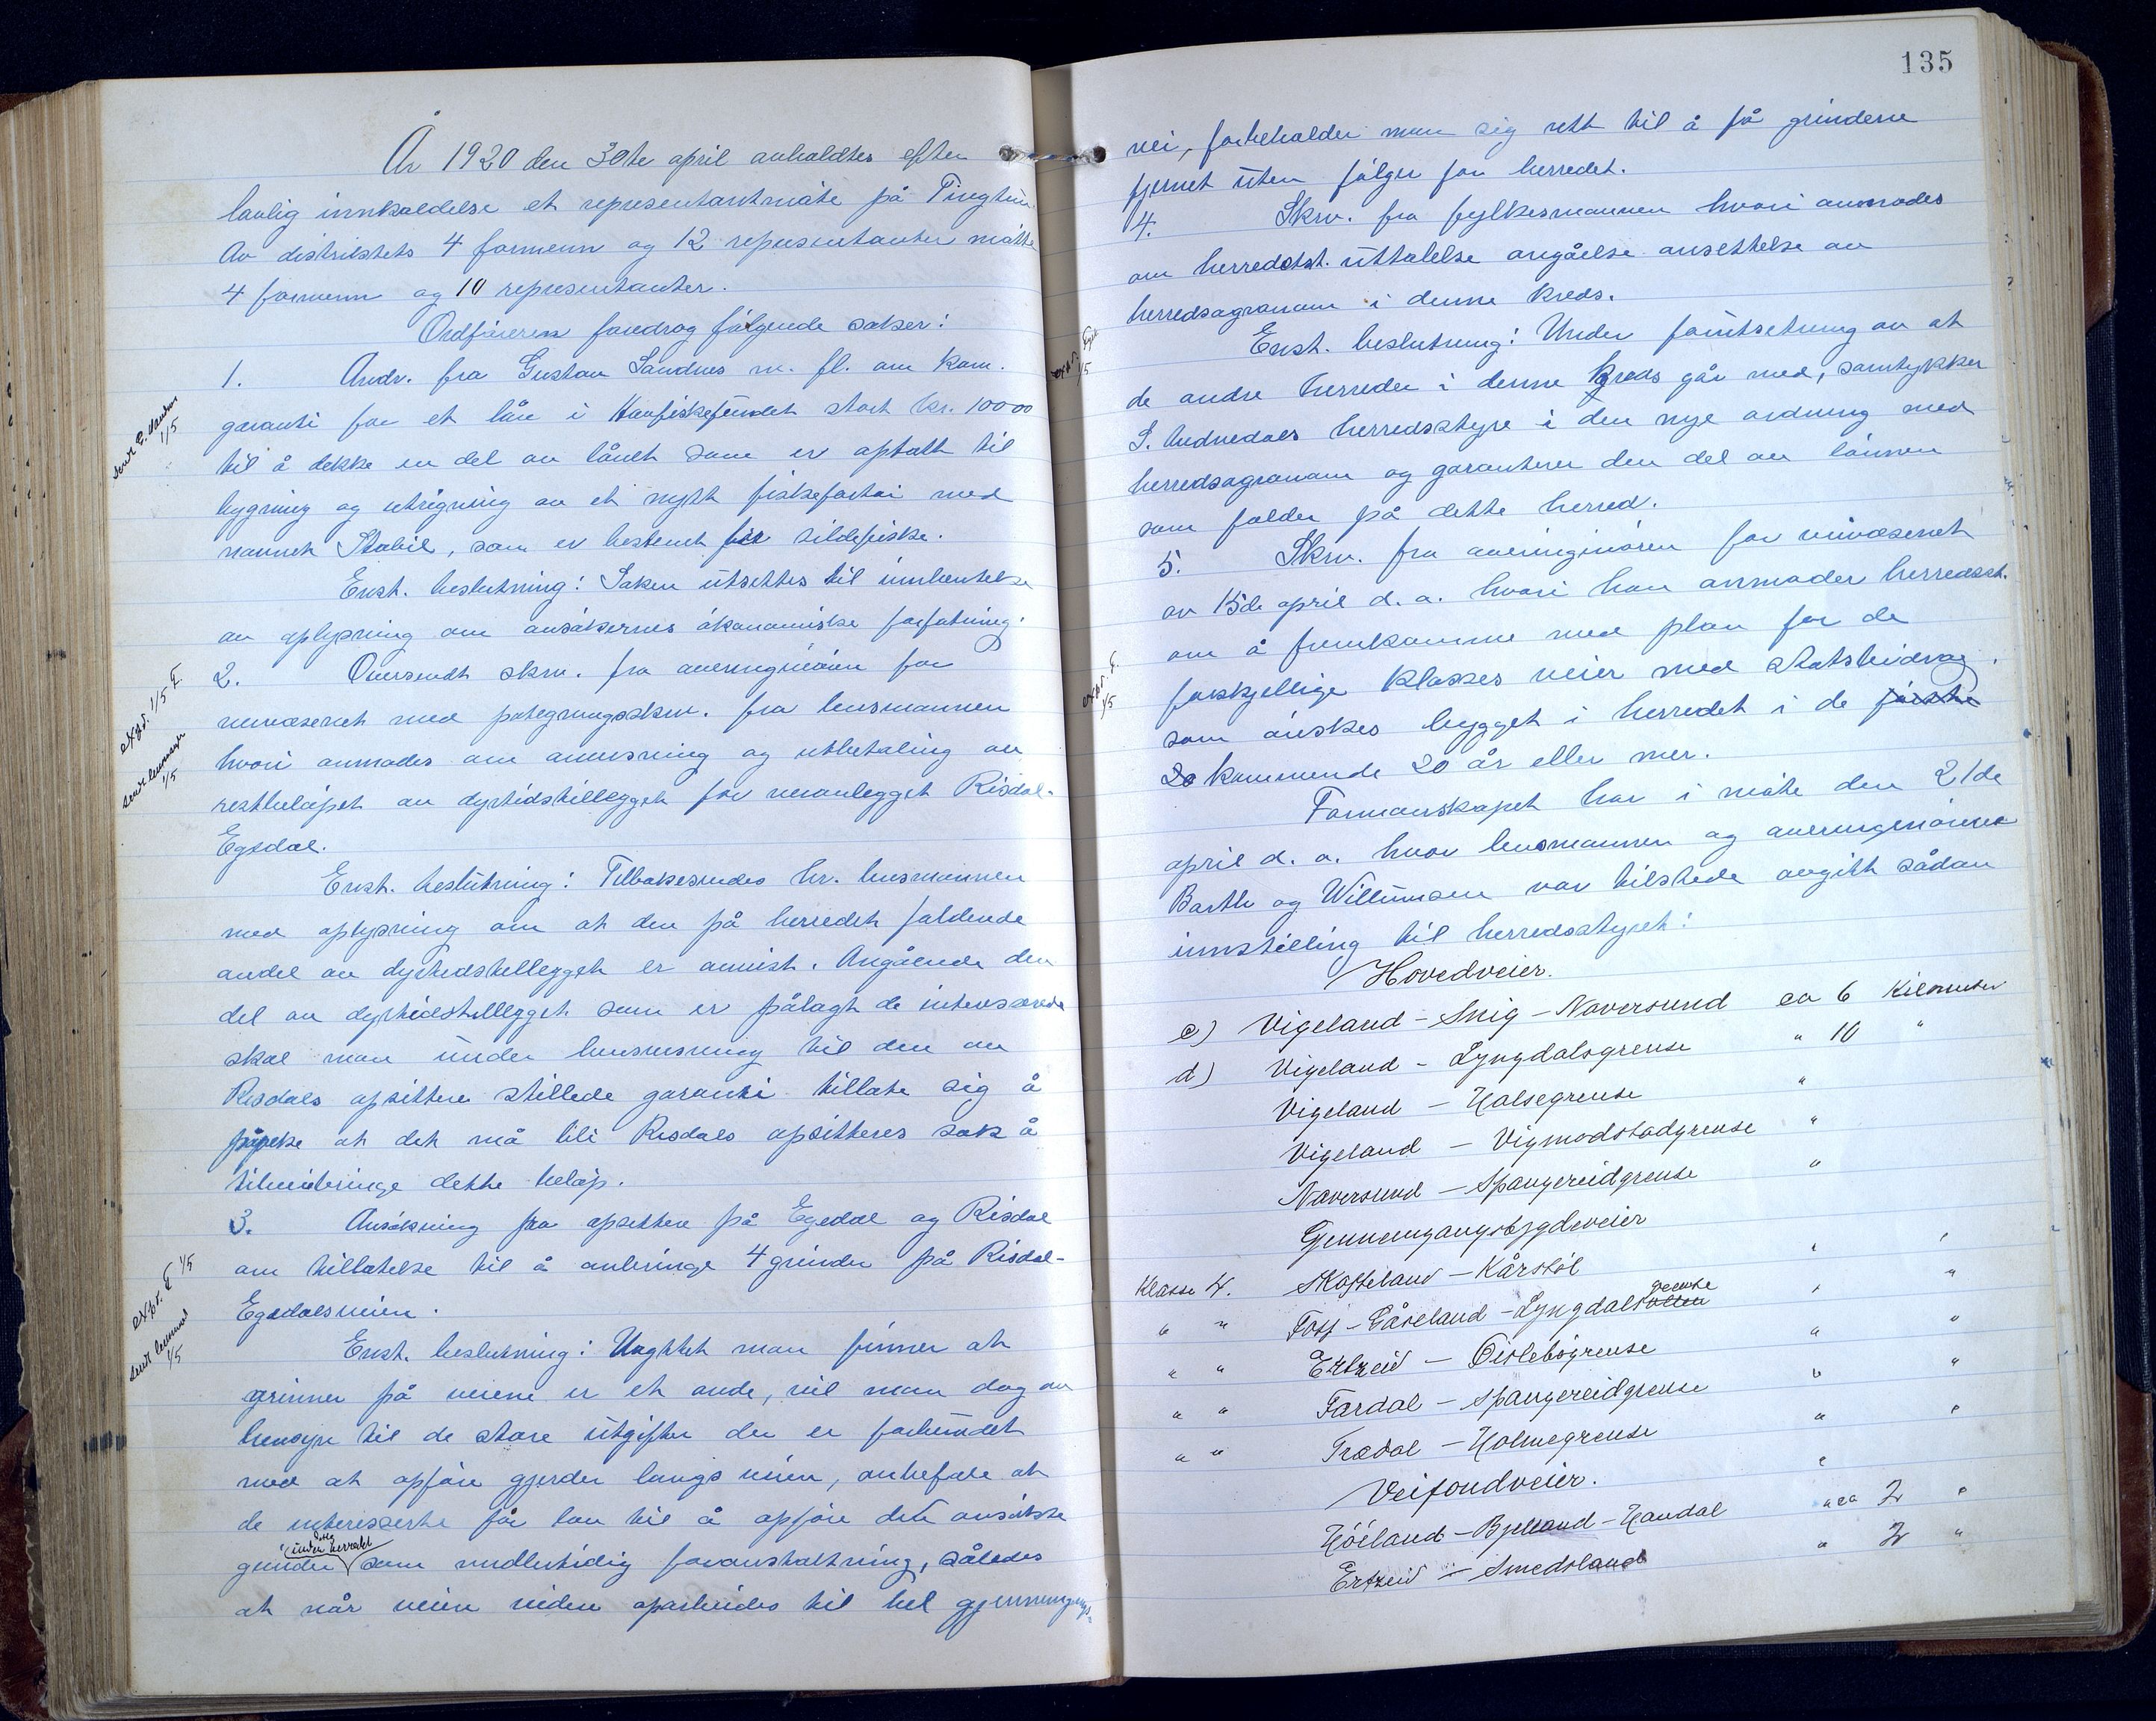 År 1920 den 30te april avholdtes efter
lovlig innkaldelse et representantmøte på Tingtun.
Av distriktets 4 formenn og 12 representanter møtte
4 formenn og 10 representanter.
Ordføreren foredrog følgende saker:
1. Andr. fra Gustav Sandnes m. fl. om kom.
garanti for et lån i Havfiskefondet stort kr. 10000
til å dekke en del av lånet som er optatt til
bygning og utrigning av et nytt fiskefartøi med
navnet Stabil, som er bestemt for sildefiske.
Enst. beslutning: Saken utsettes til innhentelse
av oplysning om ansøkernes økonomiske forfatning.
2. Oversendt skriv. fra aveningeniøren for
veivæsenet med påtegningsskriv. fra lensmannen
hvori anmodes om anvisning og utbetaling av
restbeløpet av dyrtidstillegget for veianlegget Risdal-
Egsdal.
Enst. beslutning: Tilbakesendes hr. lensmannen
med oplysning om at den på herredet faldende
andel av dyrtidstillegget er anvist. Angående den
del av dyrtidstillegget som er pålagt de interesserede
skal man under henvisning til den av
Risdals opsittere stillede garanti tillate sig å
påpeke at det må bli Risdals opsitteres sak å
tilveiebringe dette beløp.
3. Ansøkning fra opsittere på Egedal og Risdal
om tillatelse til å anbringe 4 grinder på Risdal-
Egedalsveien.
Enst. beslutning: Uagtet man finner at
grinner på veiene er et onde, vil man dog av
hensyn til de store utgifter der er forbundet
med at opføre gjerder langs veien, anbefale at
de interesserte får lov til å opføre de ansøkte
grinder under dette herredet som midlertidig foranstaltning, således
at når veien siden oparbeides til hel gjennemgangs-
sendt G. Sandnes
1/5
expr. 1/5 E.
sendt lensmannen
1/5
expr. E 1/5
sendt lensmand
1/5
135
vei, forbeholder man sig rett til å få grinderne
fjernet uten følger for herredet.
4. Skriv. fra fylkesmannen hvori anmodes
om herredstst. uttalelse angåelse ansettelse av
herredsagronom i denne kreds.
Enst. beslutning: Under forutsetning av at
de andre herreder i denne kreds går med, samtykker
S. Audnedals herredsstyre i den nye ordning med
herredsagronom og garanterer den del av lønnen
som falder på dette herred.
5. Skriv. fra aveningeniøren for veivæsenet
av 15de april d. a. hvori han anmoder herredsst.
om å fremkomme med plan for de
forskjellige klasses veier med statsbidrag
som ønskes bygget i herredet i de første
20 kommende 20 år eller mer.
Formannskapet har i møte den 21de
april d. a. hvor lensmannen og aveningeniørene
Barth og Willumsen var tilstede avgitt sådan
innstilling til herredsstyret:
Hovedveier.
c) Vigeland - Snig - Naversund ca 6 Kilometer
d) Vigeland - Lyngdalsgrense " 10 "
Vigeland - Halsegrense "
Vigeland - Vigmodstadgrense "
Naversund - Spangereidgrense "
Gjennemgangsbygdeveier
Klasse 4. Skofteland - Kårstøl " "
" " Foss - Gåseland - Lyngdalsvollen grense " "
" " Ertzeid - Øislebøgrense " "
" " Fardal - Spangereidgrense " "
" " Trædal - Holmegrense " "
Veifondveier. "
Höiland - Bjelland - Haudal " ca 2 "
Ertzeid - Smedsland " 2 "
expr. Fylk
1/5
expr. E.
1/5